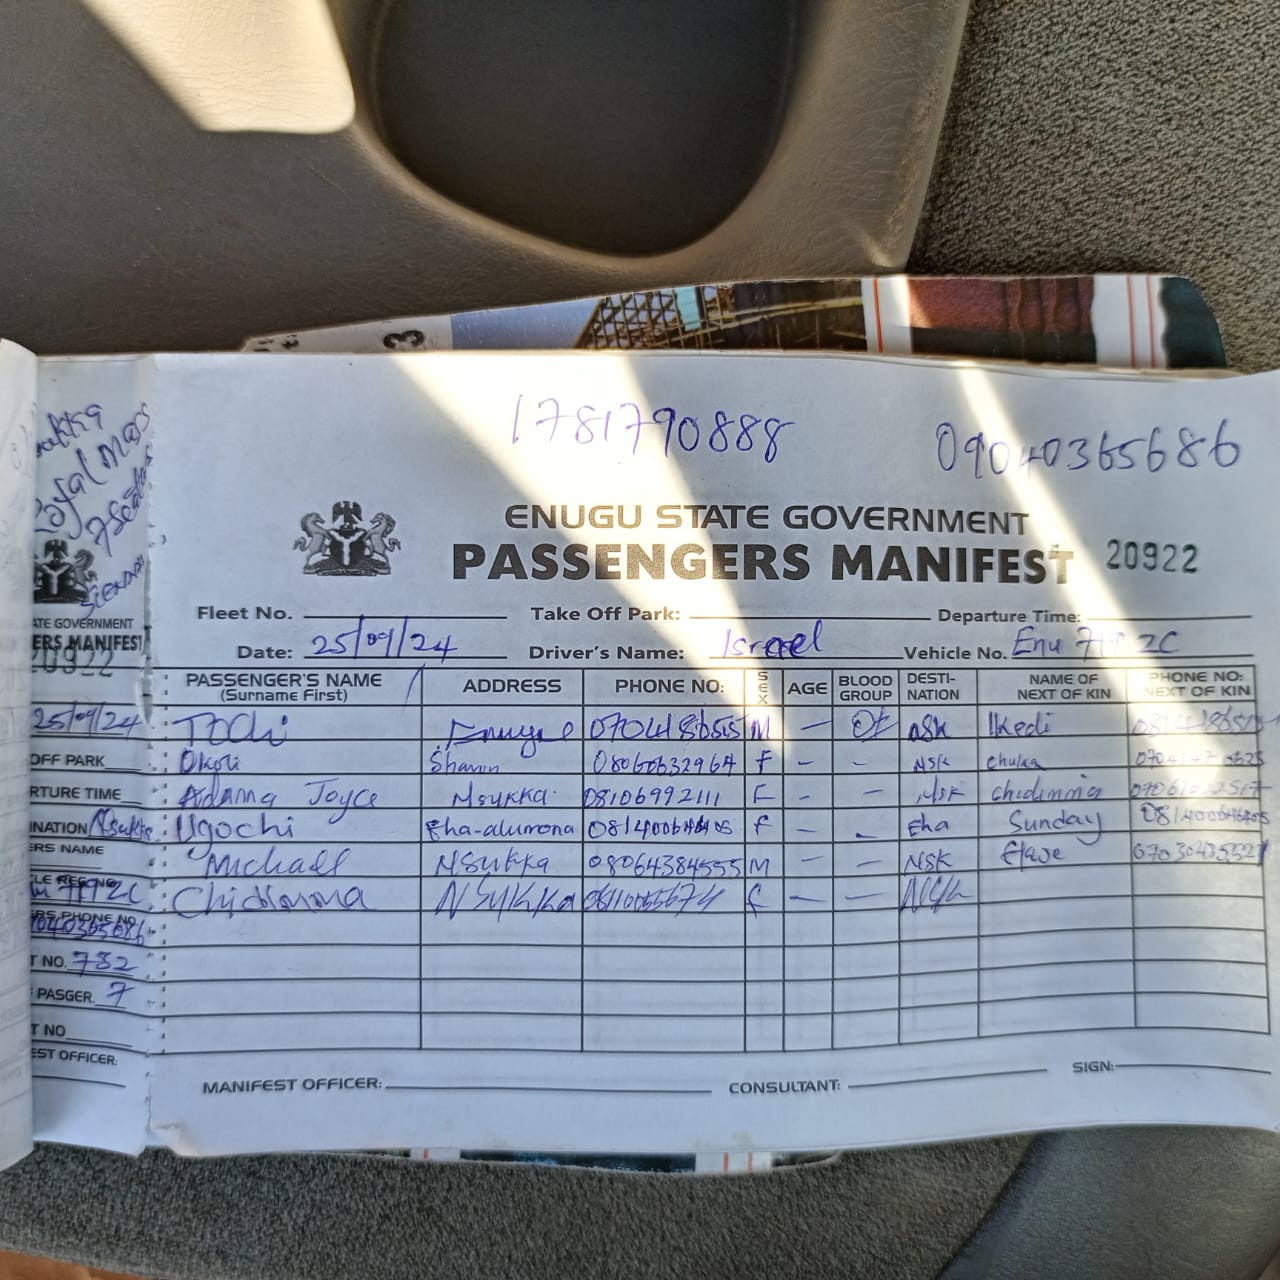 1781790888
09040365686
ENUGU STATE GOVERNMENT
PASSENGERS MANIFEST 20922
Fleet No. Take Off Park: Departure Time:
Date: 25/09/24 Driver's Name: Israel Vehicle No. Enu
PASSENGER'S NAME (Surname First) ADDRESS PHONE NO: SEX AGE BLOOD GROUP DESTI-NATION NAME OF NEXT OF KIN PHONE NO: NEXT OF KIN
Tochi Enugu M — O+ NSK Ikedi
Okori 08060632964 F - - NSK Chuka
Adanna Joyce Nsukka 08106992111 F - - NSK Chidimma
Ugochi Eha-alumona F - - Eha Sunday
Michael NSukka 08064384555 M - - NSK
Chidimma NSukka F — —
MANIFEST OFFICER: CONSULTANT: SIGN:
Royal Mass
7Seater
Sienna
ATE GOVERNMENT
ERS MANIFEST
20922
25/09/24
OFF PARK
RTURE TIME
INATION Nsukka
ERS NAME
LE REG NO
ERS PHONE NO
T NO. 782
PASGER. 7
T NO
EST OFFICER: